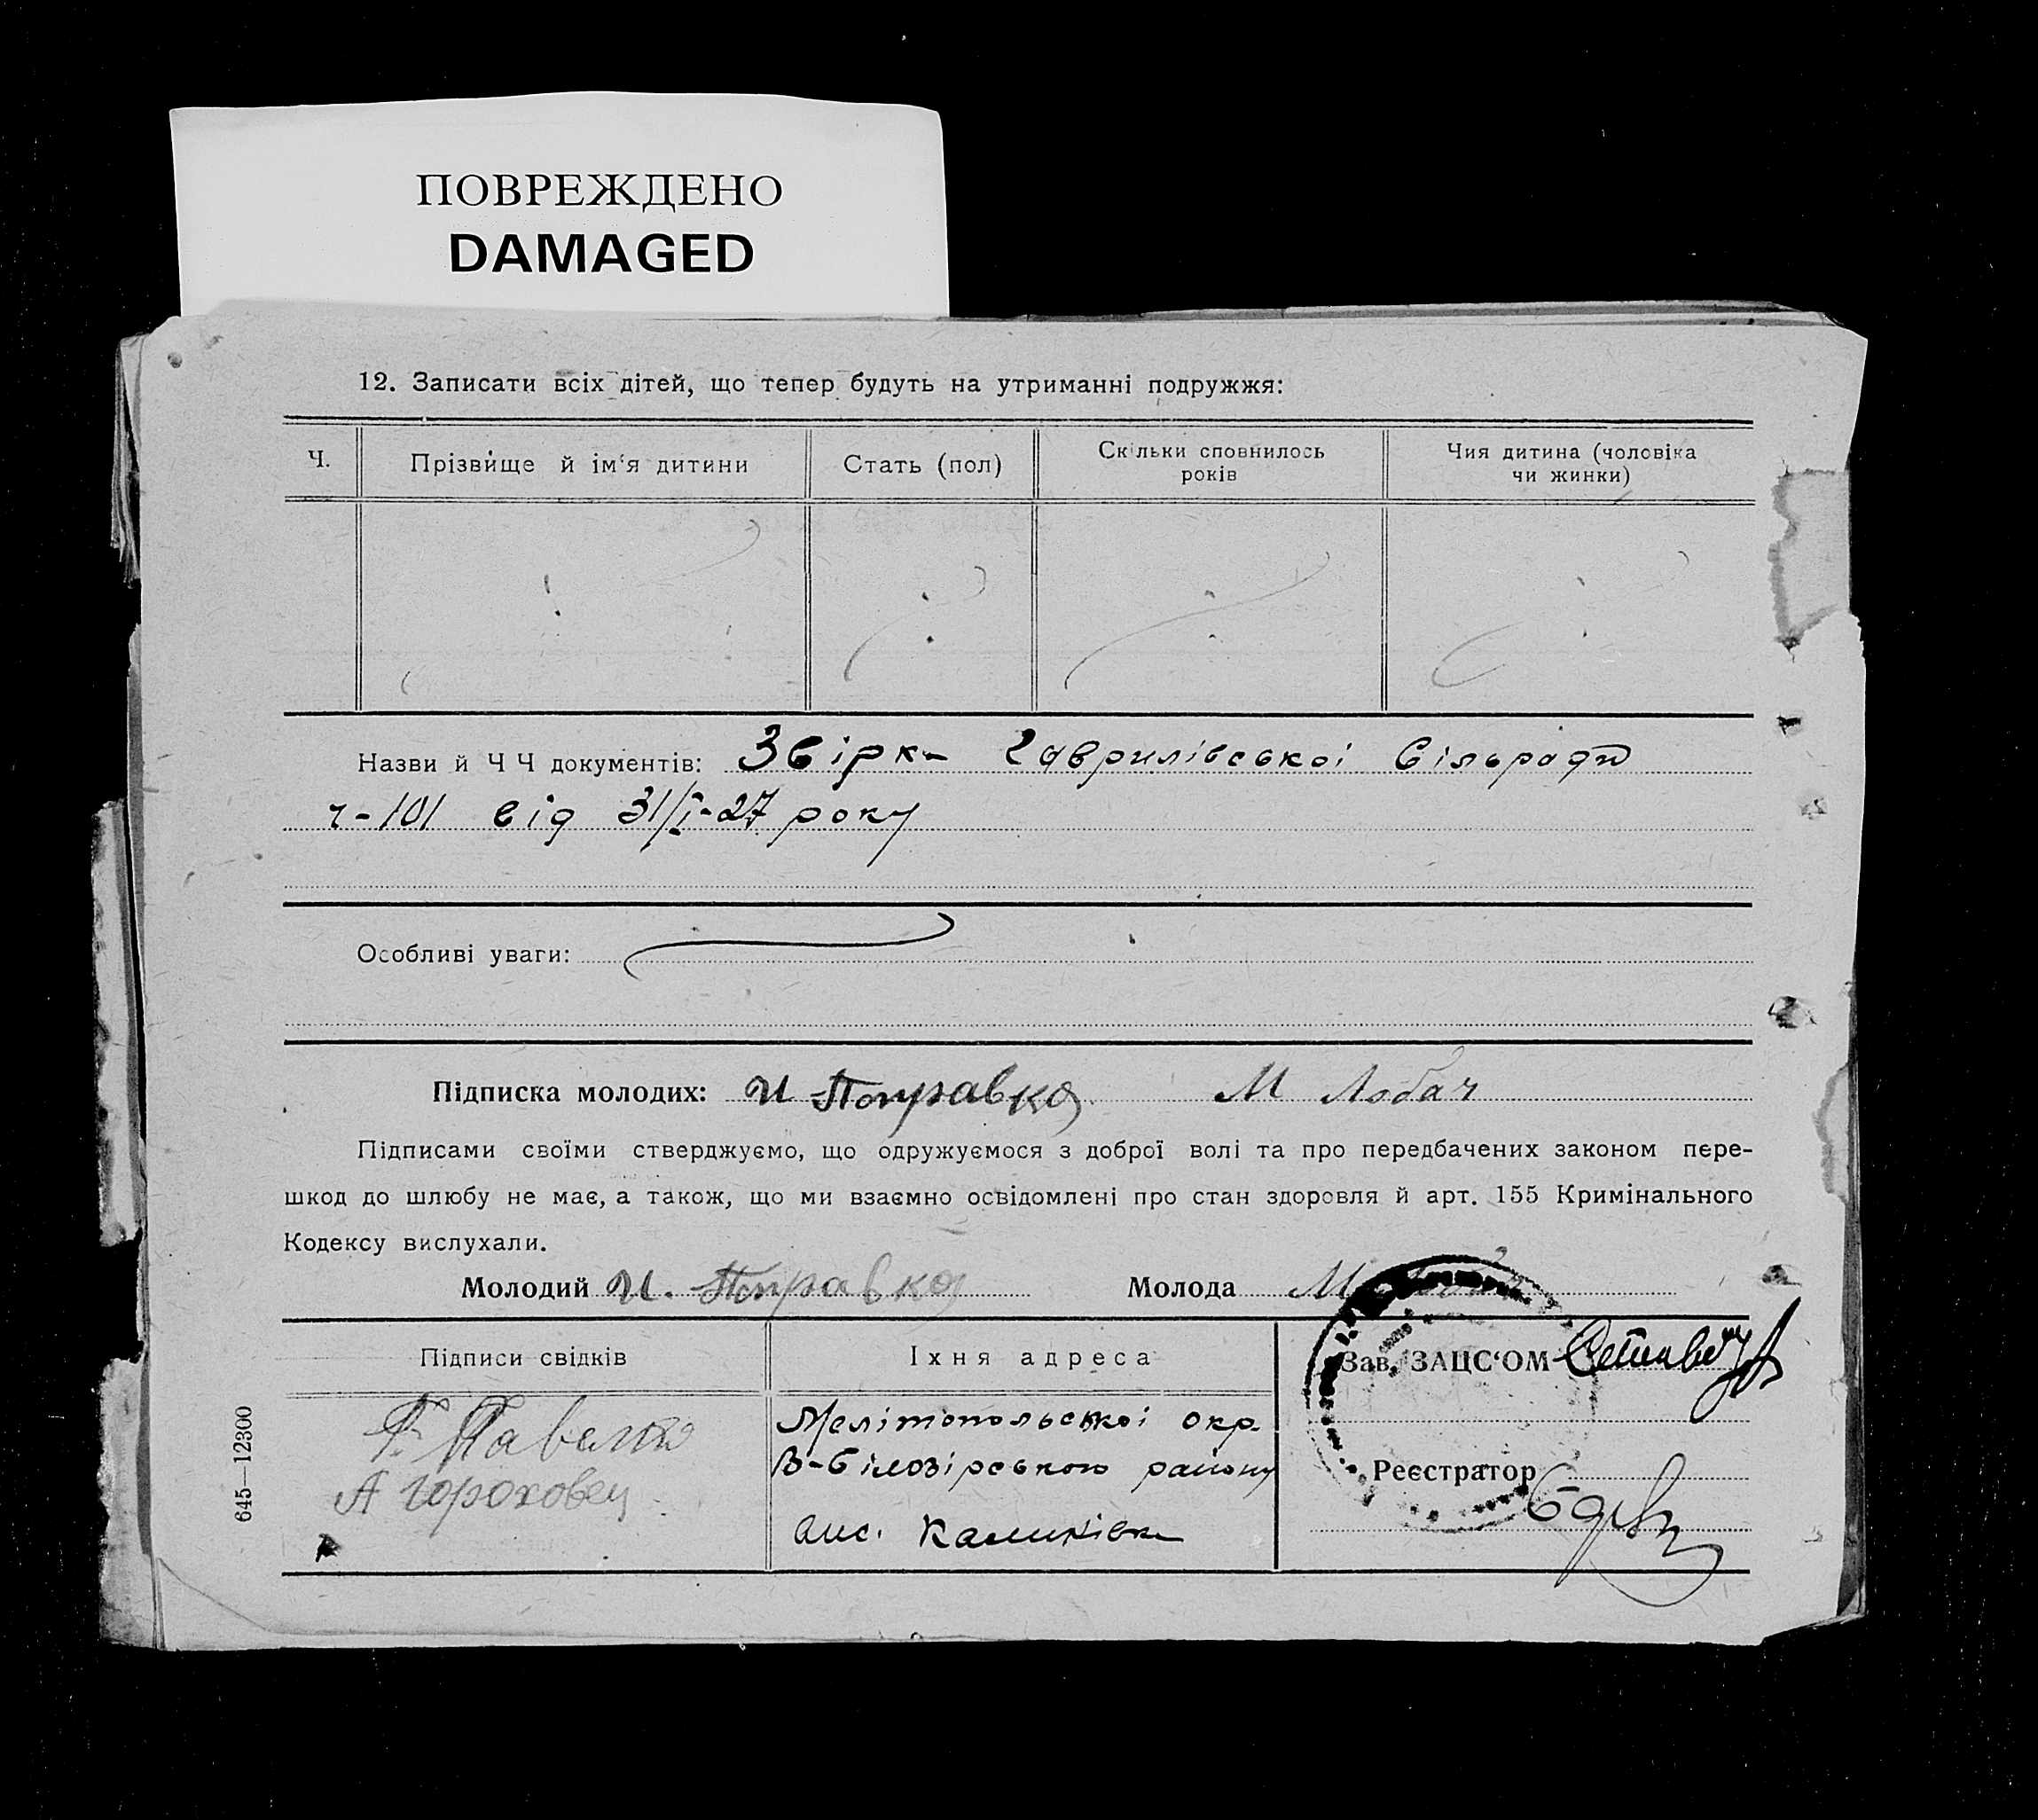 ПОВРЕЖДЕНО
DAMAGED
12. Записати всіх дітей, що тепер будуть на утриманні подружжя:
Ч. Прізвище й ім'я дитини Стать (пол) Скільки сповнилось років Чия дитина (чоловіка чи жинки)
Назви й Ч Ч документів: Звірка Гаврилівської Сільради
ч-101 від 31/I-27 року
Особливі уваги:
Підписка молодих: И Поправка М Лобач
Підписами своїми стверджуємо, що одружуємося з доброї волі та про передбачених законом пере-
шкод до шлюбу не має, а також, що ми взаємно освідомлені про стан здоровля й арт. 155 Кримінального
Кодексу вислухали.
Молодий И. Поправка Молода М
Підписи свідків Іхня адреса Зав. ЗАЦС'ОМ
Г. Павелко Мелітопольської окр.
А Гороховец В-Білозірського району Реєстратор
645—12300